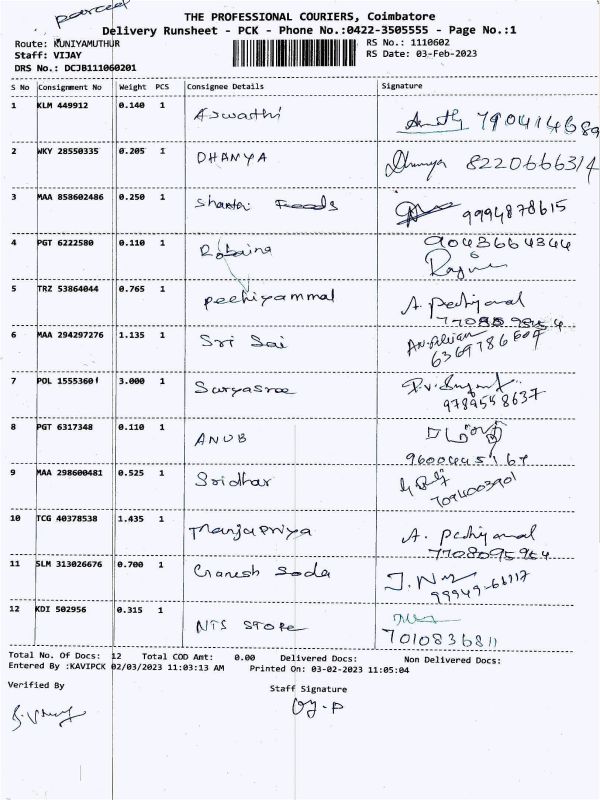 parcel
THE PROFESSIONAL COURIERS, Coimbatore
Delivery Runsheet - PCK - Phone No.:0422-3505555 - Page No.:1
Route: KUNIYAMUTHUR RS No.: 1110602
Staff: VIJAY RS Date: 03-Feb-2023
DRS No.: DCJB111060201
S No Consignment No Weight PCS Consignee Details Signature
1 KLM 449912 0.140 1 Aswathi 7904114689
2 WKY 28550335 0.205 1 DHANYA Dhanya 8220666314
3 MAA 858602486 0.250 1 Shanthi Foods 9994878615
4 PGT 6222580 0.110 1 Robaina 9043664344
5 TRZ 53864044 0.765 1 pechiyammal A. Pechiyamal
6 MAA 294297276 1.135 1 Sri Sai 6369786609
7 POL 15553601 3.000 1 Suryasree 9789558637
8 PGT 6317348 0.110 1 ANUB
9 MAA 298600481 0.525 1 Sridhar
10 TCG 40378538 1.435 1 Manjupriya A. Pechiyamal
7708095954
11 SLM 313026676 0.700 1 Ganesh Soda 99949-66117
12 KDI 502956 0.315 1 NTS STORE
7010836811
Total No. Of Docs: 12 Total COD Amt: 0.00 Delivered Docs: Non Delivered Docs:
Entered By :KAVIPCK 02/03/2023 11:03:13 AM Printed On: 03-02-2023 11:05:04
Verified By Staff Signature